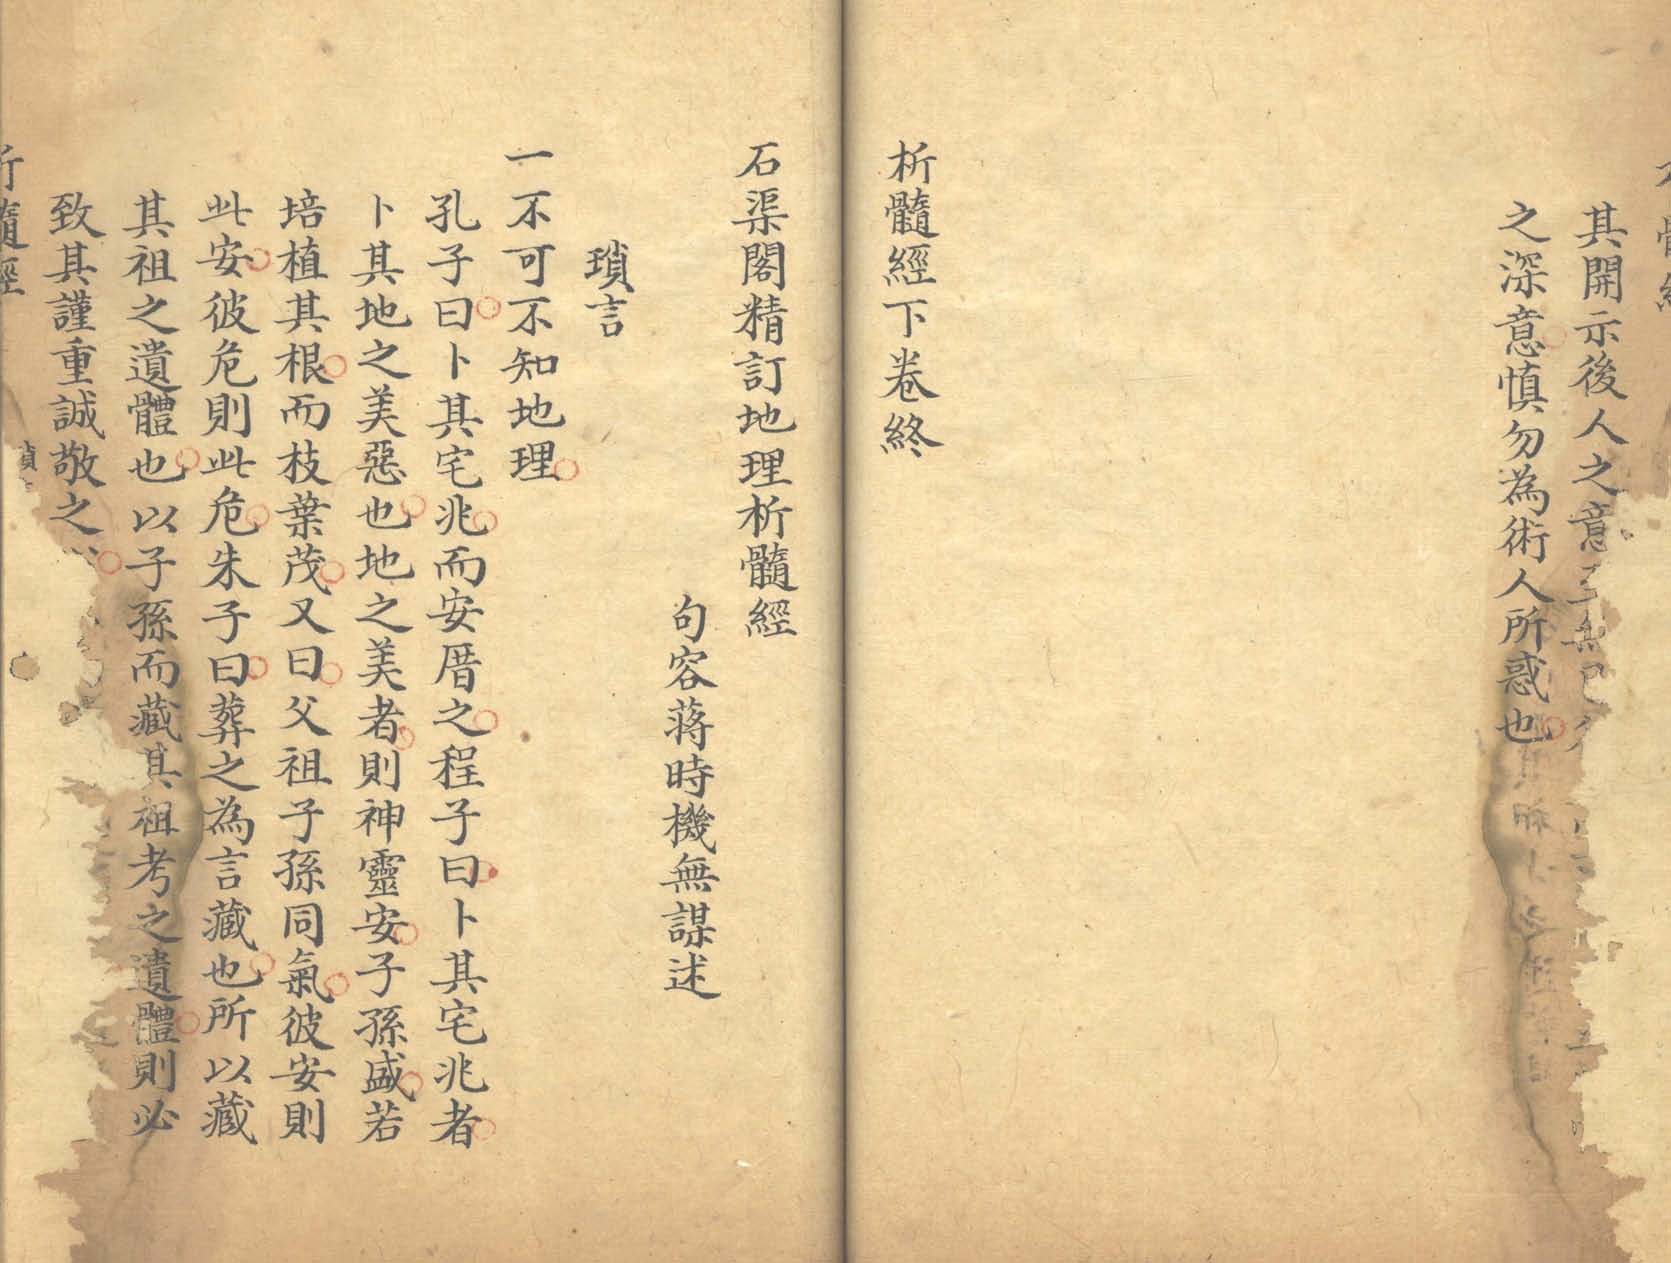 其開示後人之意
之深意慎勿為術人所惑也
析髓經下卷終
石渠閣精訂地理析髓經
句容蔣時機無謀述
瑣言
一不可不知地理
孔子曰卜其宅兆而安厝之程子曰卜其宅兆者
卜其地之美惡也地之美者則神靈安子孫盛若
培植其根而枝葉茂又曰父祖子孫同氣彼安則
此安彼危則此危朱子曰葬之為言藏也所以藏
其祖之遺體也以子孫而藏其祖考之遺體則必
致其謹重誠敬之
析髓經